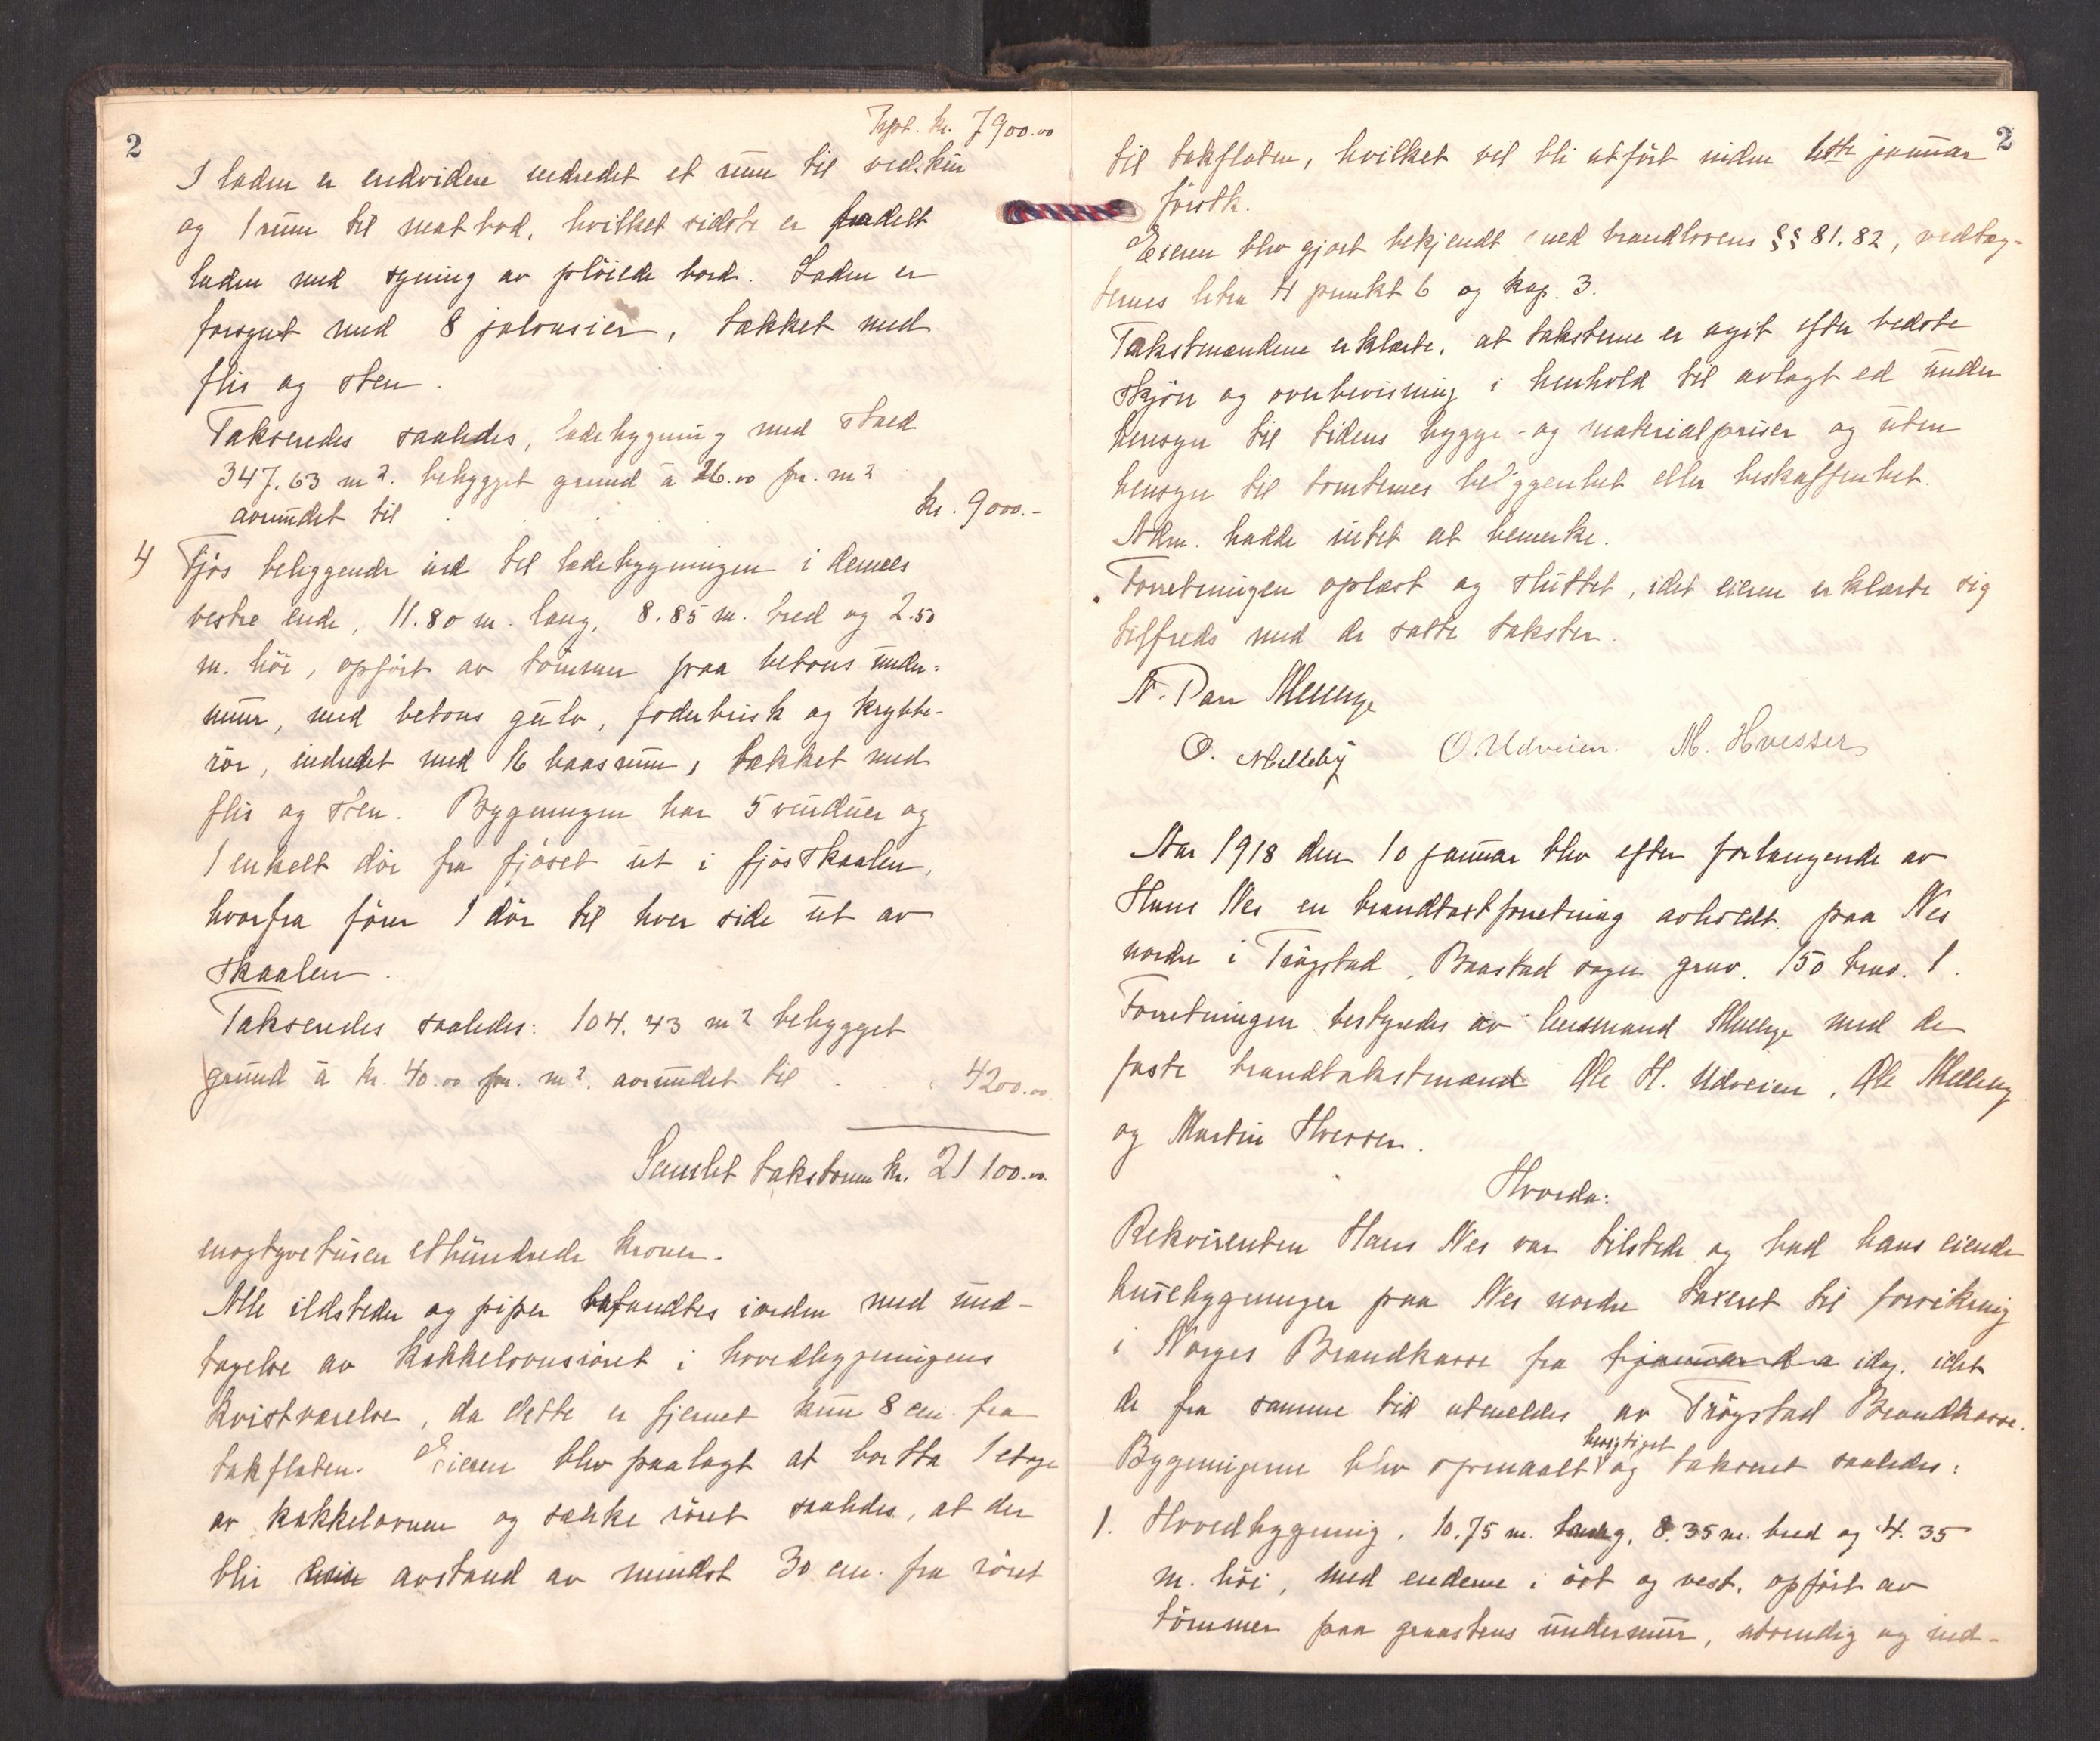 2
Trpt. kr. 7900.00
I laden er endvidere indredet et rum til vedskur
og 1 rum til matbod, hvilket sidste er fradelt
laden med syning av pløiede bord. Laden er
forsynt med 8 jalousier, tækket med
flis og sten.
Takseredes saaledes, ladebygning med stald
347,63 m². bebygget grund à 26.00 pr. m²
avrundet til . . . . kr. 9000.-
4) Fjøs beliggende ind til ladebygningen i dennes
vestre ende, 11.80 m. lang, 8.85 m. bred og 2.50
m. høi, opført av tømmer paa betons under-
mur, med betons gulv, foderbrisk og krybbe-
rør, indredet med 16 baasrum, tækket med
flis og sten. Bygningen har 5 vinduer og
1 enkelt dør fra fjøset ut i fjøsskaalen,
hvorfra fører 1 dør til hver side ut av
skaalen.
Takseredes saaledes: 104,43 m² bebygget
grund à kr. 40.00 pr. m². avrundet til . . . 4200.00
Samlet takstsum kr. 21 100.00
enogtyvetusen ethundrede kroner.
Alle ildsteder og piper befandtes iorden med und-
tagelse av kakkelovnsrøret i hovedbygningens
kvistværelse, da dette er fjernet kun 8 cm. fra
takflaten. Eieren blev paalagt at bortta 1 etage
av kakkelovnen og sænke røret saaledes, at der
blir avstand av mindst 30 cm. fra røret
2
til takflaten, hvilket vil bli utført inden januar
førstk.
Eieren blev gjort bekjendt med brandlovens §§ 81, 82, vedtæg-
ternes litra H punkt 6 og kap. 3.
Takstmændene erklærte, at taksterne er avgit efter bedste
skjøn og overbevisning i henhold til avlagt ed under
hensyn til tidens bygge- og materialpriser og uten
hensyn til tomternes beliggenhet eller beskaffenhet.
Adm. hadde intet at bemerke.
Forretningen oplæst og sluttet, idet eieren erklærte sig
tilfreds med de satte takster.
O. Melleby O. Udveien. M. Hvesser
Aar 1918 den 10 januar blev efter forlangende av
Hans Nes en brandtaxtforretning avholdt paa Nes
nordre i Trøgstad, Baastad sogn gnrv. 150 brno. 1.
Forretningen bestyredes av lensmand med de
faste brandtakstmænd Ole H. Udveien, Ole Melleby
og Martin Hvesser.
Hvorda:
Rekvirenten Hans Nes var tilstede og bad hans eiende
husebygninger paa Nes nordre taxeret til forsikring
i Norges Brandkasse fra idag, idet
de fra samme tid utmeldes av Trøgstad Brandkasse.
Bygningerne blev opmaalt besigtiget og takseret saaledes:
1. Hovedbygning, 10,75 m. lang, 8.35 m. bred og 4.35
m. høi, med enderne i øst og vest, opført av
tømmer paa graastens undermur, utvendig og ind-